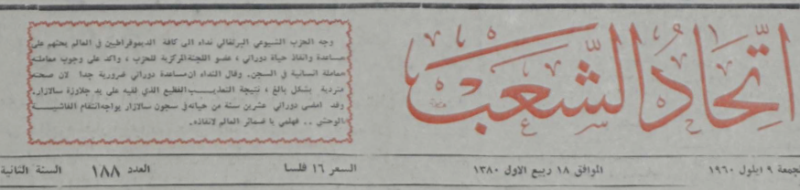 اتحاد الشعب
وجه الحزب الشيوعي البرتغالي نداء الى كافة الديموقراطيين في العالم يحثهم على
مساعدة وانقاذ حياة دوراتي ، عضو اللجنة المركزية للحزب ، واكد على وجوب معاملته
معاملة انسانية في السجن. وقال النداء ان مساعدة دوراتي ضرورية جدا لان صحته
متردية بشكل بالغ ، نتيجة التعذيب الفظيع الذي لقيه على يد جلاوزة سالازار.
وقد امضى دوراتي عشرين سنة من حياته في سجون سالازار يواجه انتقام الفاشية
الوحشي .. فهلمي يا ضمائر العالم لانقاذه.
جمعة ٩ ايلول ١٩٦٠ الموافق ١٨ ربيع الاول ١٣٨٠ السعر ١٦ فلسا العدد ١٨٨ السنة الثانية